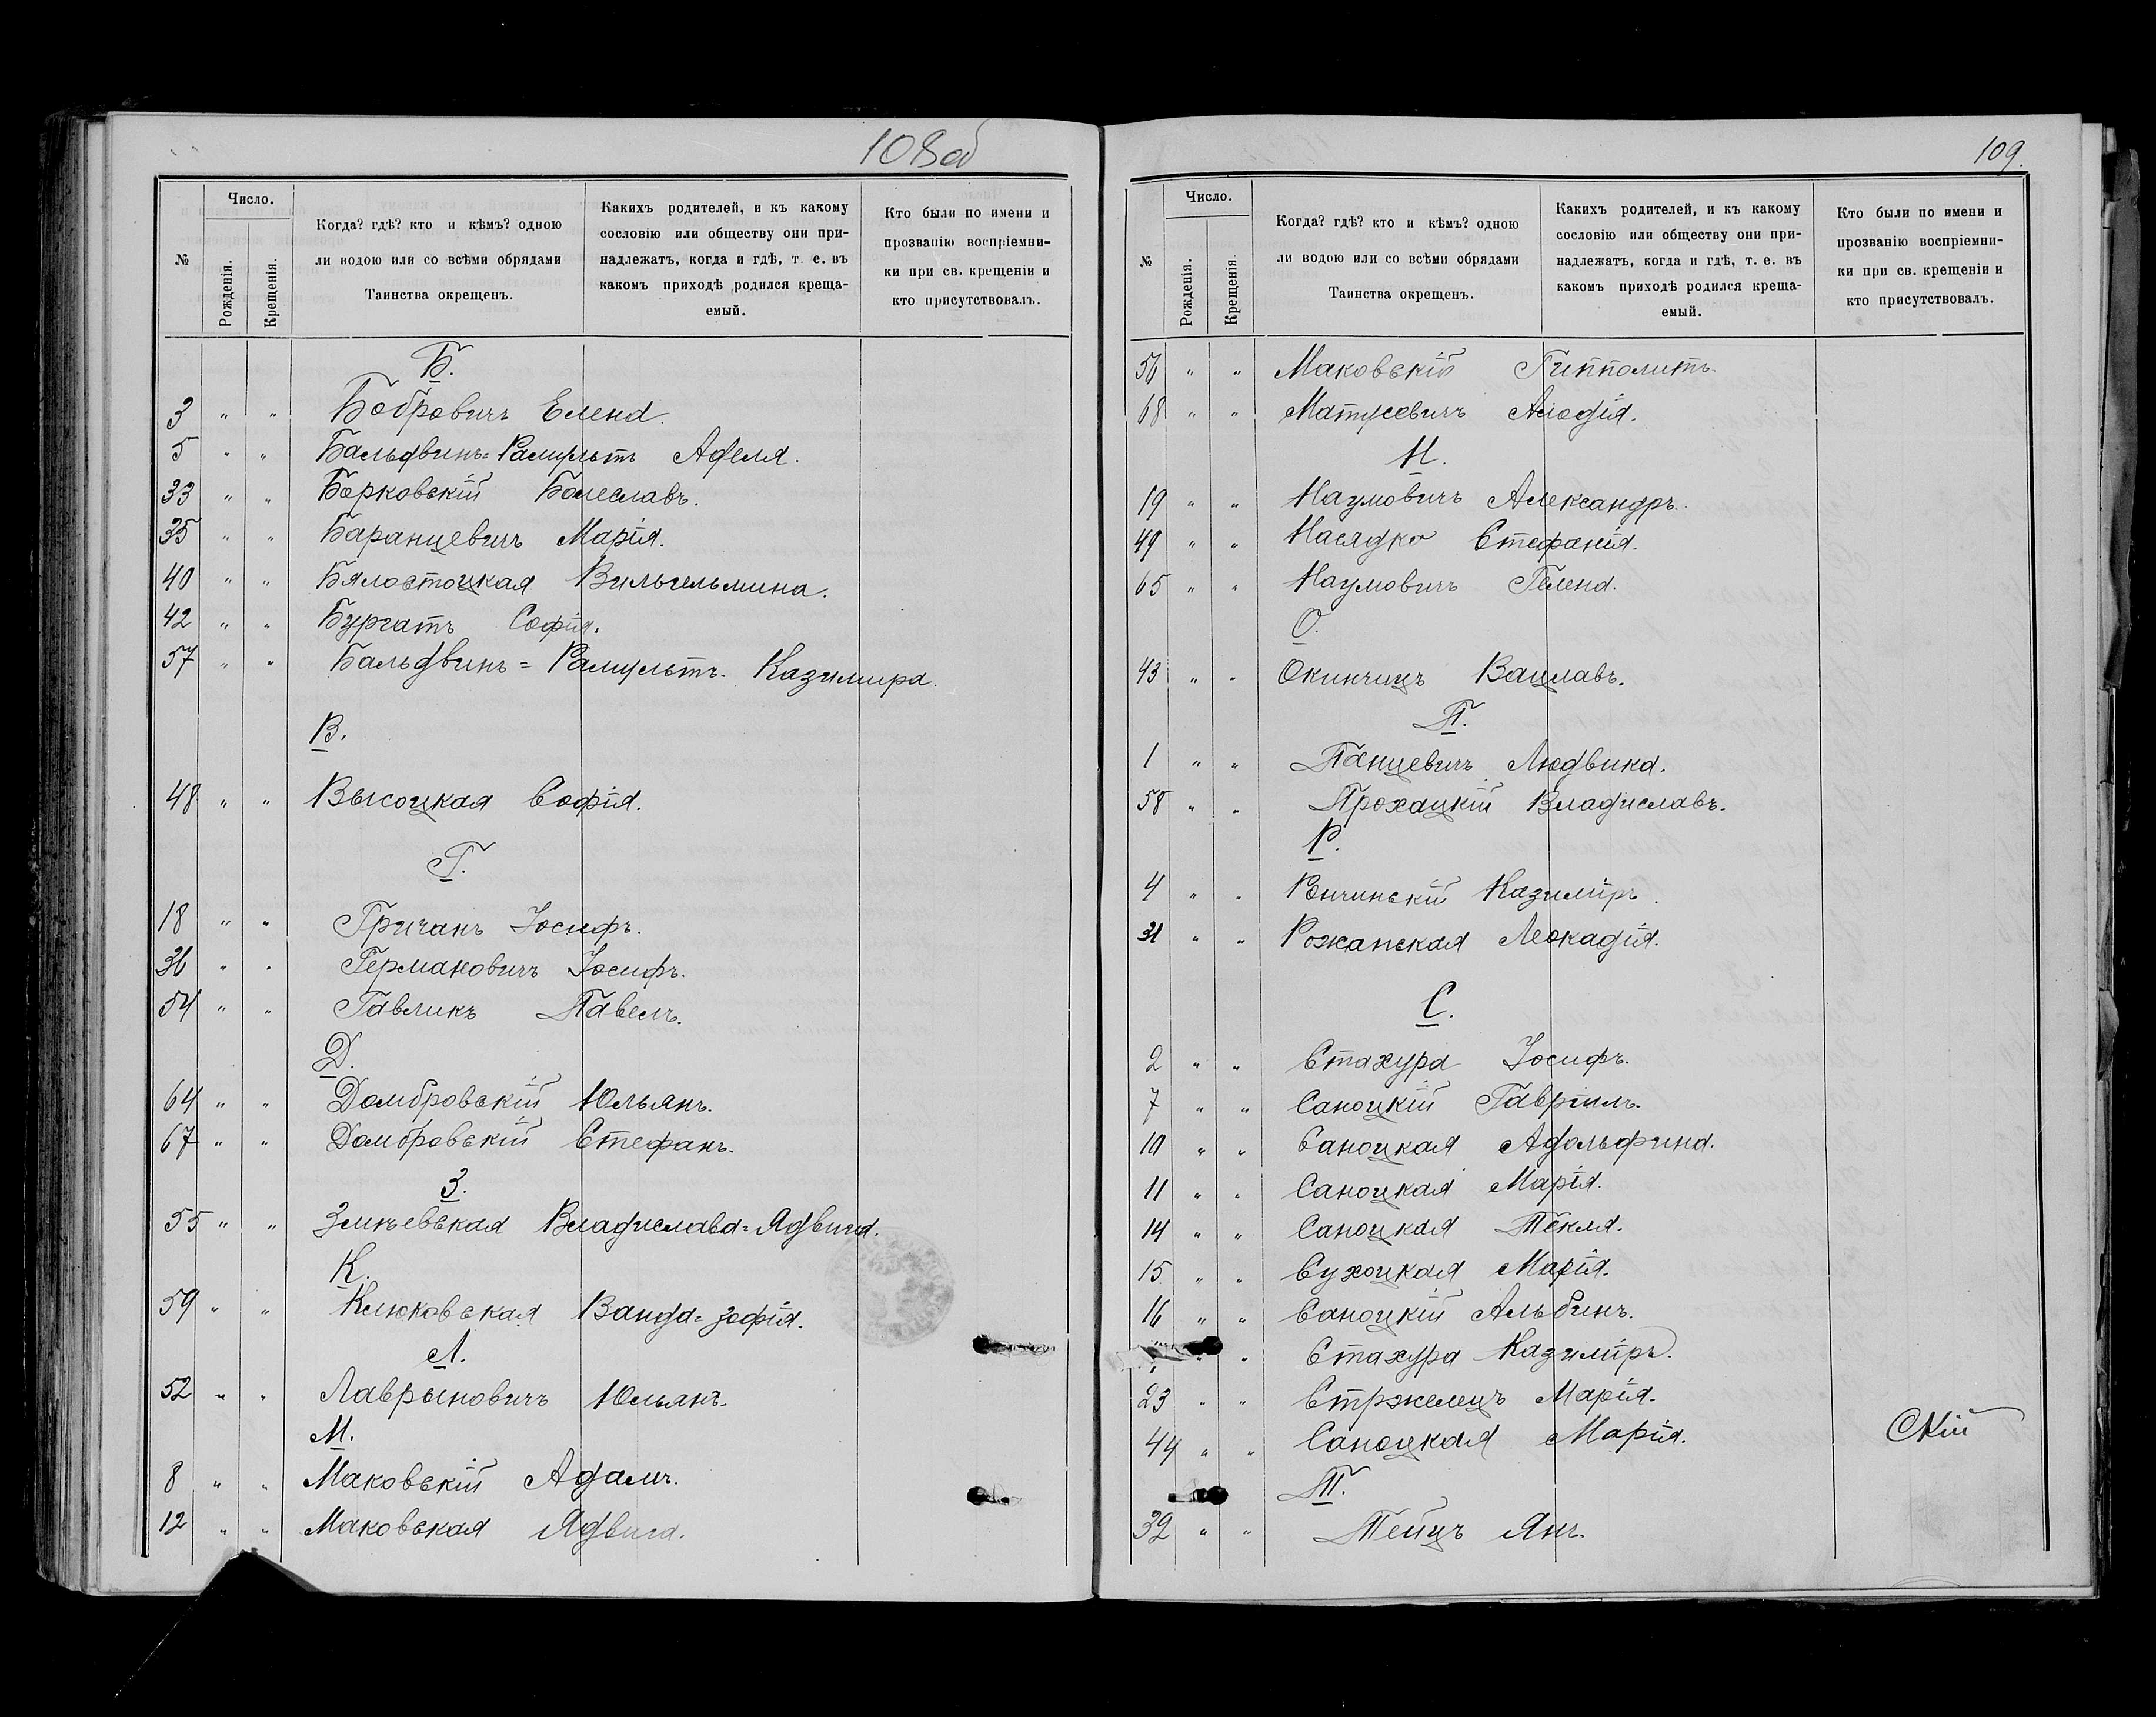 108об
№
Число.
Рожденія.
Крещенія.
Когда? гдѣ? кто и кѣмъ? одною
ли водою или со всѣми обрядами
Таинства окрещенъ.
Какихъ родителей, и къ какому
сословію или обществу они при-
надлежатъ, когда и гдѣ, т. е. въ
какомъ приходѣ родился креща-
емый.
Кто были по имени и
прозванію воспріемни-
ки при св. крещеніи и
кто присутствовалъ.
Б.
3 " " Бобровичъ Елена.
5 " " Бальдвинъ=Рамультъ Аделя.
33 " " Борковскій Болеславъ.
35 " " Баранцевичъ Марія.
40 " " Бялостоцкая Вильгельмина.
42 " " Бургатъ Софія.
57 " " Бальдвинъ=Рамультъ. Казимира.
В.
48 " " Высоцкая Софія.
Г.
18 " " Гричанъ Іосифъ.
36 " " Германовичъ Іосифъ.
54 " " Гавликъ Павелъ.
Д.
64 " " Домбровскій Юльянъ.
67 " " Домбровскій Стефанъ.
З.
55 " " Змѣевская Владислава=Ядвига.
К.
59 " " Клюковская Ванда=Зофія.
Л.
52 " " Лаврыновичъ Юльянъ.
М.
8 " " Маковскій Адамъ.
12 " " Маковская Ядвига.
109.
№
Число.
Рожденія.
Крещенія.
Когда? гдѣ? кто и кѣмъ? одною
ли водою или со всѣми обрядами
Таинства окрещенъ.
Какихъ родителей, и къ какому
сословію или обществу они при-
надлежатъ, когда и гдѣ, т. е. въ
какомъ приходѣ родился креща-
емый.
Кто были по имени и
прозванію воспріемни-
ки при св. крещеніи и
кто присутствовалъ.
56 " " Маковскій Гипполитъ.
68 " " Матусевичъ
Н.
19 " " Наумовичъ Александръ.
49 " " Насядко Стефанія.
65 " " Наумовичъ Гелена.
О.
43 " " Окинчицъ Вацлавъ.
П.
1 " " Панцевичъ Людвика.
58 " " Прохацкій Владиславъ.
Р.
4 " " Рончинскій Казиміръ.
31 " " Рожанская Леокадія.
С.
2 " " Стахура Іосифъ.
7 " " Саноцкій Гавріилъ.
10 " " Саноцкая Адольфина.
11 " " Саноцкая Марія.
14 " " Саноцкая Текля.
15. " " Сухоцкая Марія.
16 " " Саноцкій Альбинъ.
" " Стахура Казиміръ.
23 " " Стржелецъ Марія.
44 " " Саноцкая Марія.
Скій
Т.
32 " " Тейцъ Янъ.